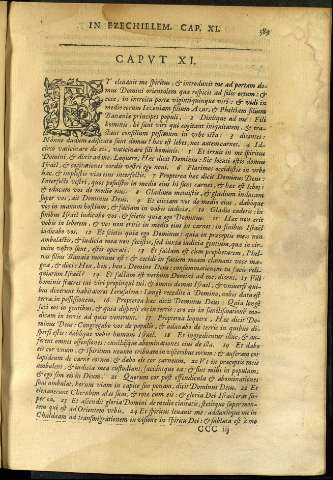 IN EZECHIELEM. CAP. XI.
589
CAPVT XI.
T eleuauit me spiritus, & introduxit me ad portam do-
mus Domini orientalem quæ respicit ad solis ortum: &
ecce, in introitu portæ vigintiquinque viri: & vidi in
medio eorum Iezoniam filium Azur, & Pheltiam filium
Banaiæ principes populi. 2 Dixitque ad me: Fili
hominis, hi sunt viri qui cogitant iniquitatem, &
consilium pessimum in vrbe ista: 3 dicentes:
Nonne dudum ædificatæ sunt domus? hæc est lebes, nos autem carnes. 4 Id-
circo vaticinare de eis, vaticinare fili hominis. 5 Et irruit in me spiritus
Domini, & dixit ad me: Loquere, Hæc dicit Dominus: Sic locuti estis domus
Israel, & cogitationes cordis vestri ego noui. 6 Plurimos occidistis in vrbe
hac, & implestis vias eius interfectis. 7 Propterea hæc dicit Dominus Deus:
Interfecti vestri, quos posuistis in medio eius hi sunt carnes, & hæc est lebes:
& educam vos de medio eius. 8 Gladium metuistis, & gladium inducam
super vos, ait Dominus Deus. 9 Et eiiciam vos de medio eius, dabóque
vos in manum hostium, & faciam in vobis iudicia. 10 Gladio cadetis: in
finibus Israel iudicabo vos, & scietis quia ego Dominus. 11 Hæc non erit
vobis in lebetem, & vos non eritis in medio eius in carnes: in finibus Israel
iudicabo vos. 12 Et scietis quia ego Dominus: quia in præceptis meis non
ambulastis, & iudicia mea non fecistis, sed iuxta iudicia gentium, quæ in cir-
cuitu vestro sunt, estis operati. 13 Et factum est cum prophetarem, Phel-
tias filius Banaiæ mortuus est: & cecidi in faciem meam clamans voce ma-
gna, & dixi: Heu, heu, heu Domine Deus: consummationem tu facis reli-
quiarum Israel? 14 Et factum est verbum Domini ad me, dicens, 15 Fili
hominis fratres tui viri propinqui tui, & omnis domus Israel, & vniuersi qui-
bus dixerunt habitatores Ierusalem: Longè recedite à Domino, nobis data est
terra in possessionem. 16 Propterea hæc dicit Dominus Deus: Quia longè
feci eos in gentibus, & quia dispersi eos in terris: ero eis in sanctificationem mo-
dicam in terris ad quas venerunt. 17 Propterea loquere: Hæc dicit Do-
minus Deus: Congregabo vos de populis, & adunabo de terris in quibus di-
spersi estis: dabóque vobis humum Israel. 18 Et ingredientur illuc, & au-
ferent omnes offensiones, cunctásque abominationes eius de illa. 19 Et dabo
eis cor vnum, & spiritum nouum tribuam in visceribus eorum: & auferam cor
lapideum de carne eorum, & dabo eis cor carneum, 20 Vt in præceptis meis
ambulent, & iudicia mea custodiant, faciántque ea: & sint mihi in populum,
& ego sim eis in Deum. 21 Quorum cor post offendicula & abominationes
suas ambulat, horum viam in capite suo ponam, dicit Dominus Deus. 22 Et
eleuauerunt Cherubim alas suas, & rotæ cum eis: & gloria Dei Israel erat su-
per ea. 23 Et ascendit gloria Domini de medio ciuitatis, stetítque super mon-
tem qui est ad Orientem vrbis. 24 Et spiritus leuauit me: adduxítque me in
Chaldæam ad transmigrationem in visione in spiritu Dei: & sublata est à me
CCC iij